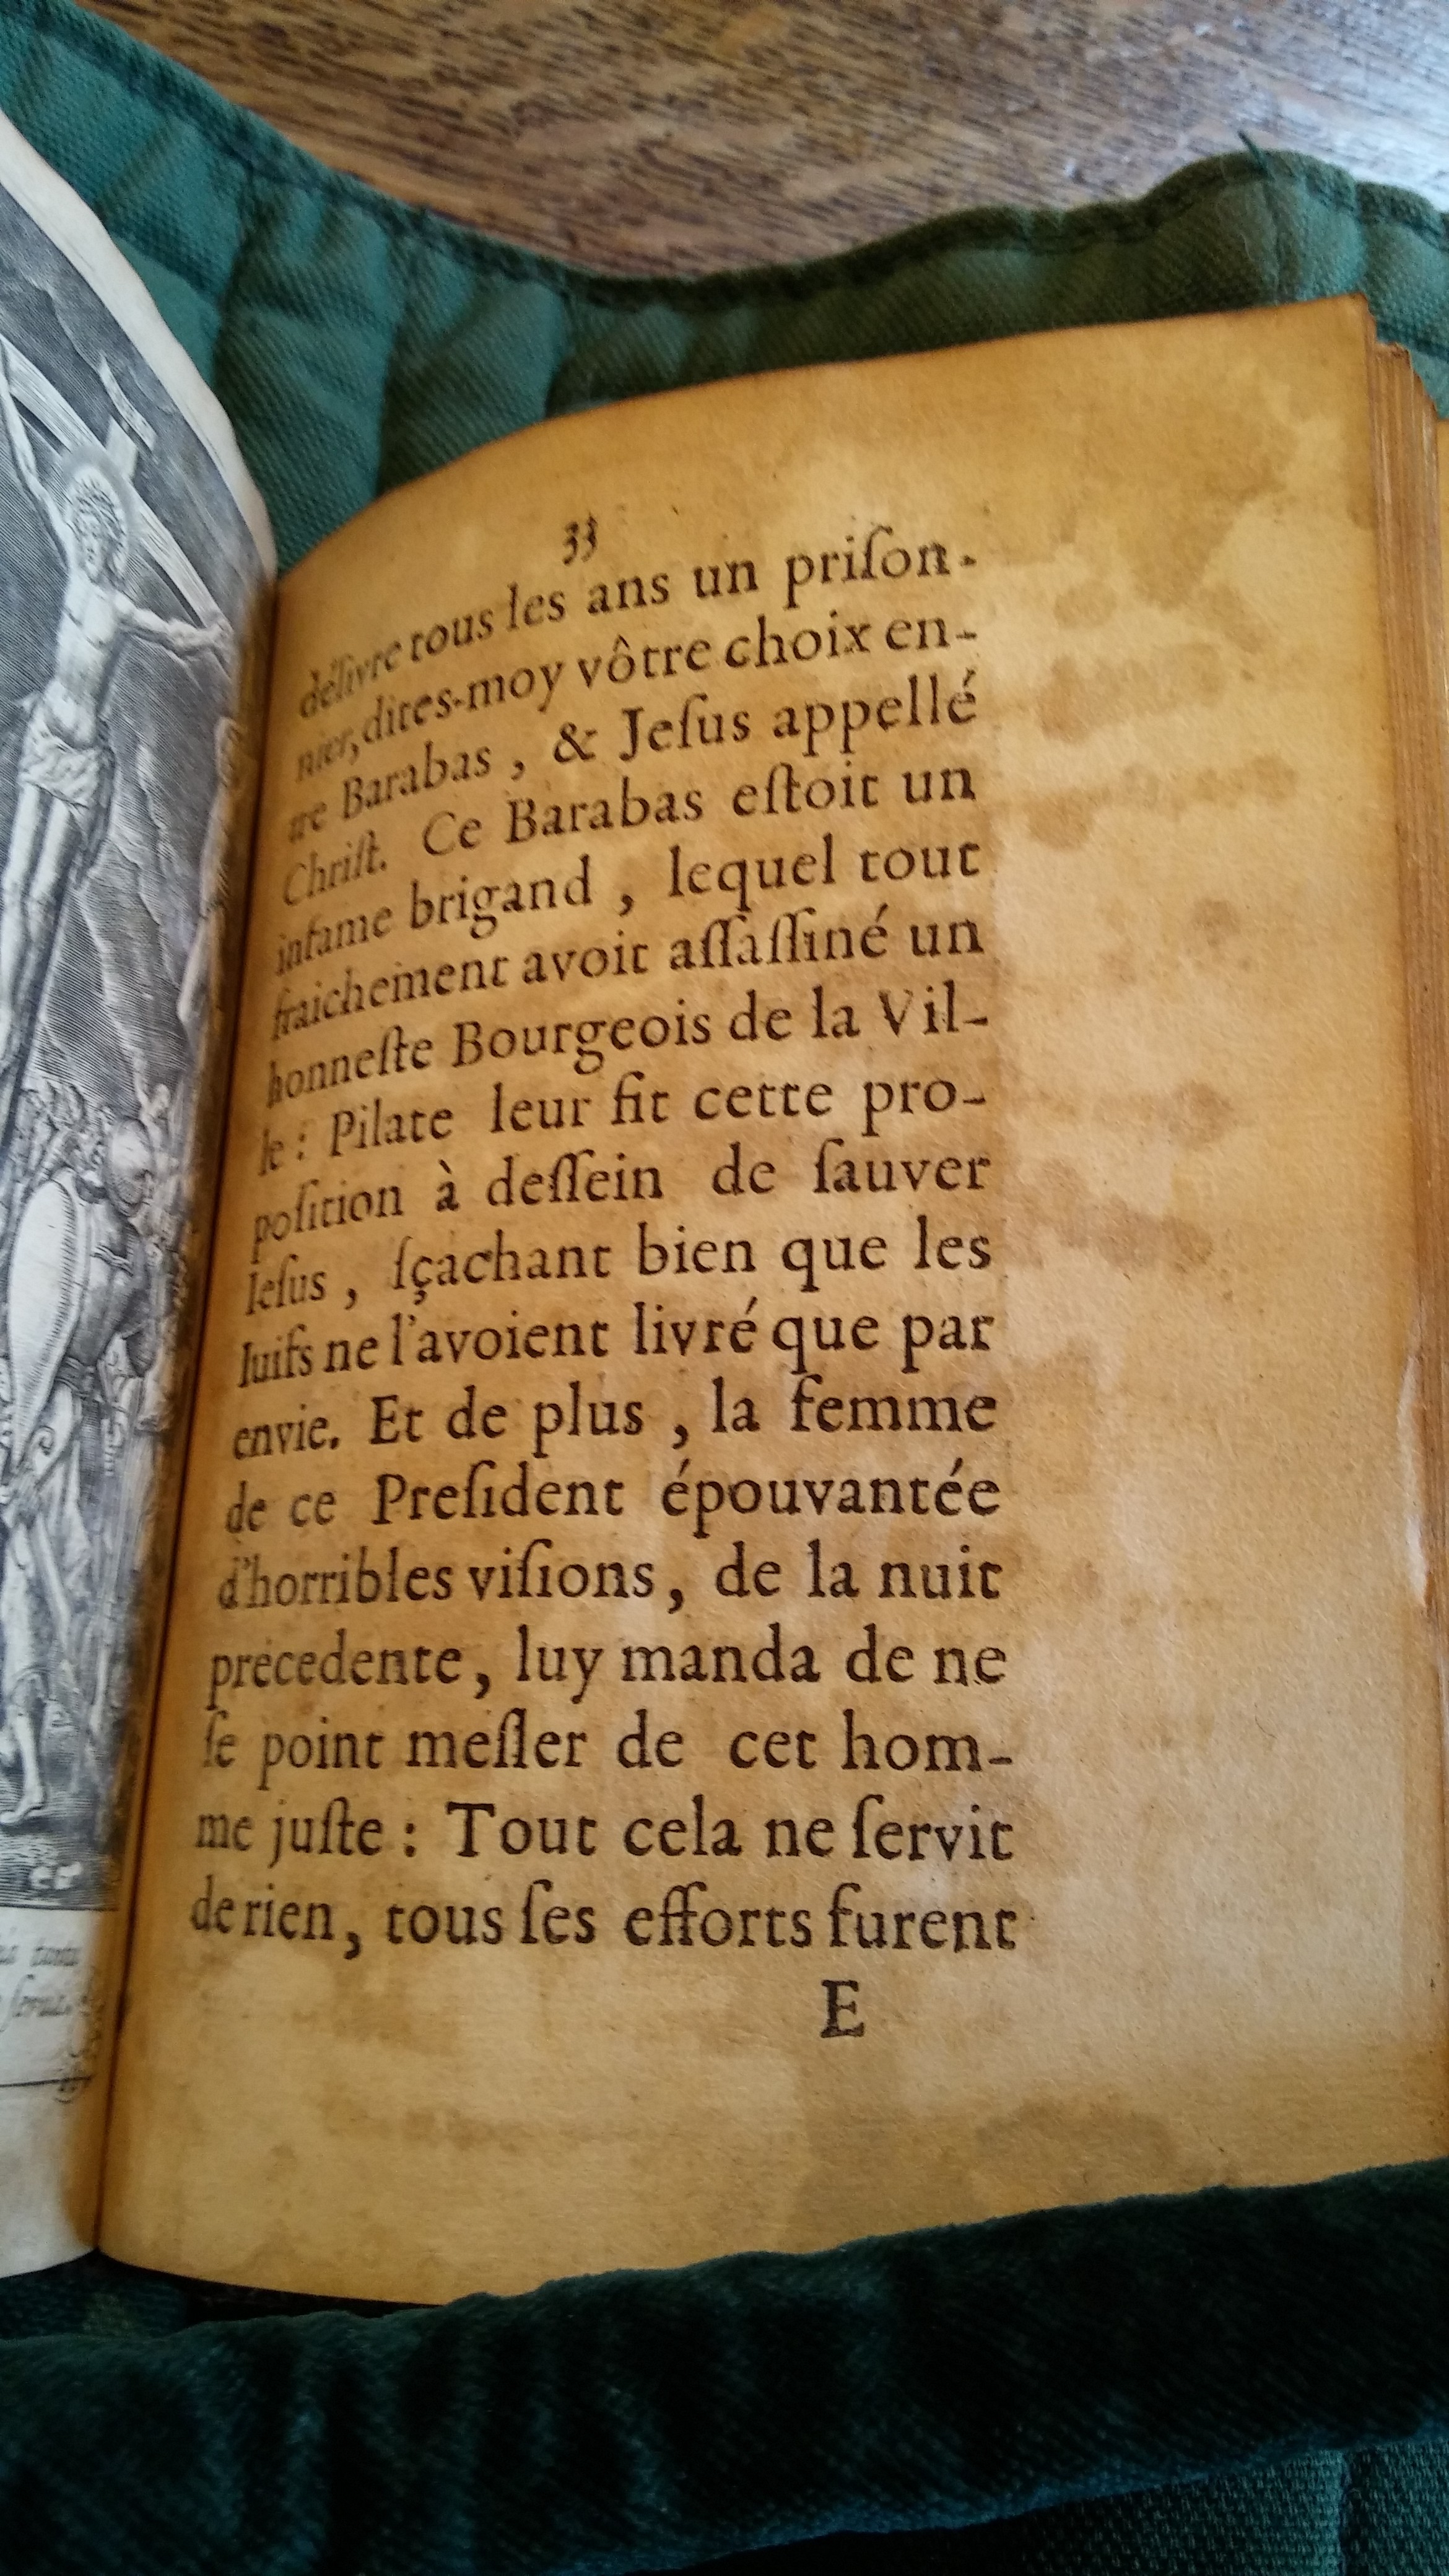 33
délivre tous les ans un priſon-
nier, dites-moy vôtre choix en-
tre Barabas, & Jeſus appellé
Chriſt. Ce Barabas eſtoit un
infame brigand, lequel tout
fraichement avoit aſſaſſiné un
honneſte Bourgeois de la Vil-
le : Pilate leur fit cette pro-
poſition à deſſein de ſauver
Ieſus, ſçachant bien que les
Iuifs ne l'avoient livré que par
envie. Et de plus, la femme
de ce Preſident épouvantée
d'horribles viſions, de la nuit
precedente, luy manda de ne
ſe point meſler de cet hom-
me juſte : Tout cela ne ſervit
de rien, tous ſes efforts furent
E